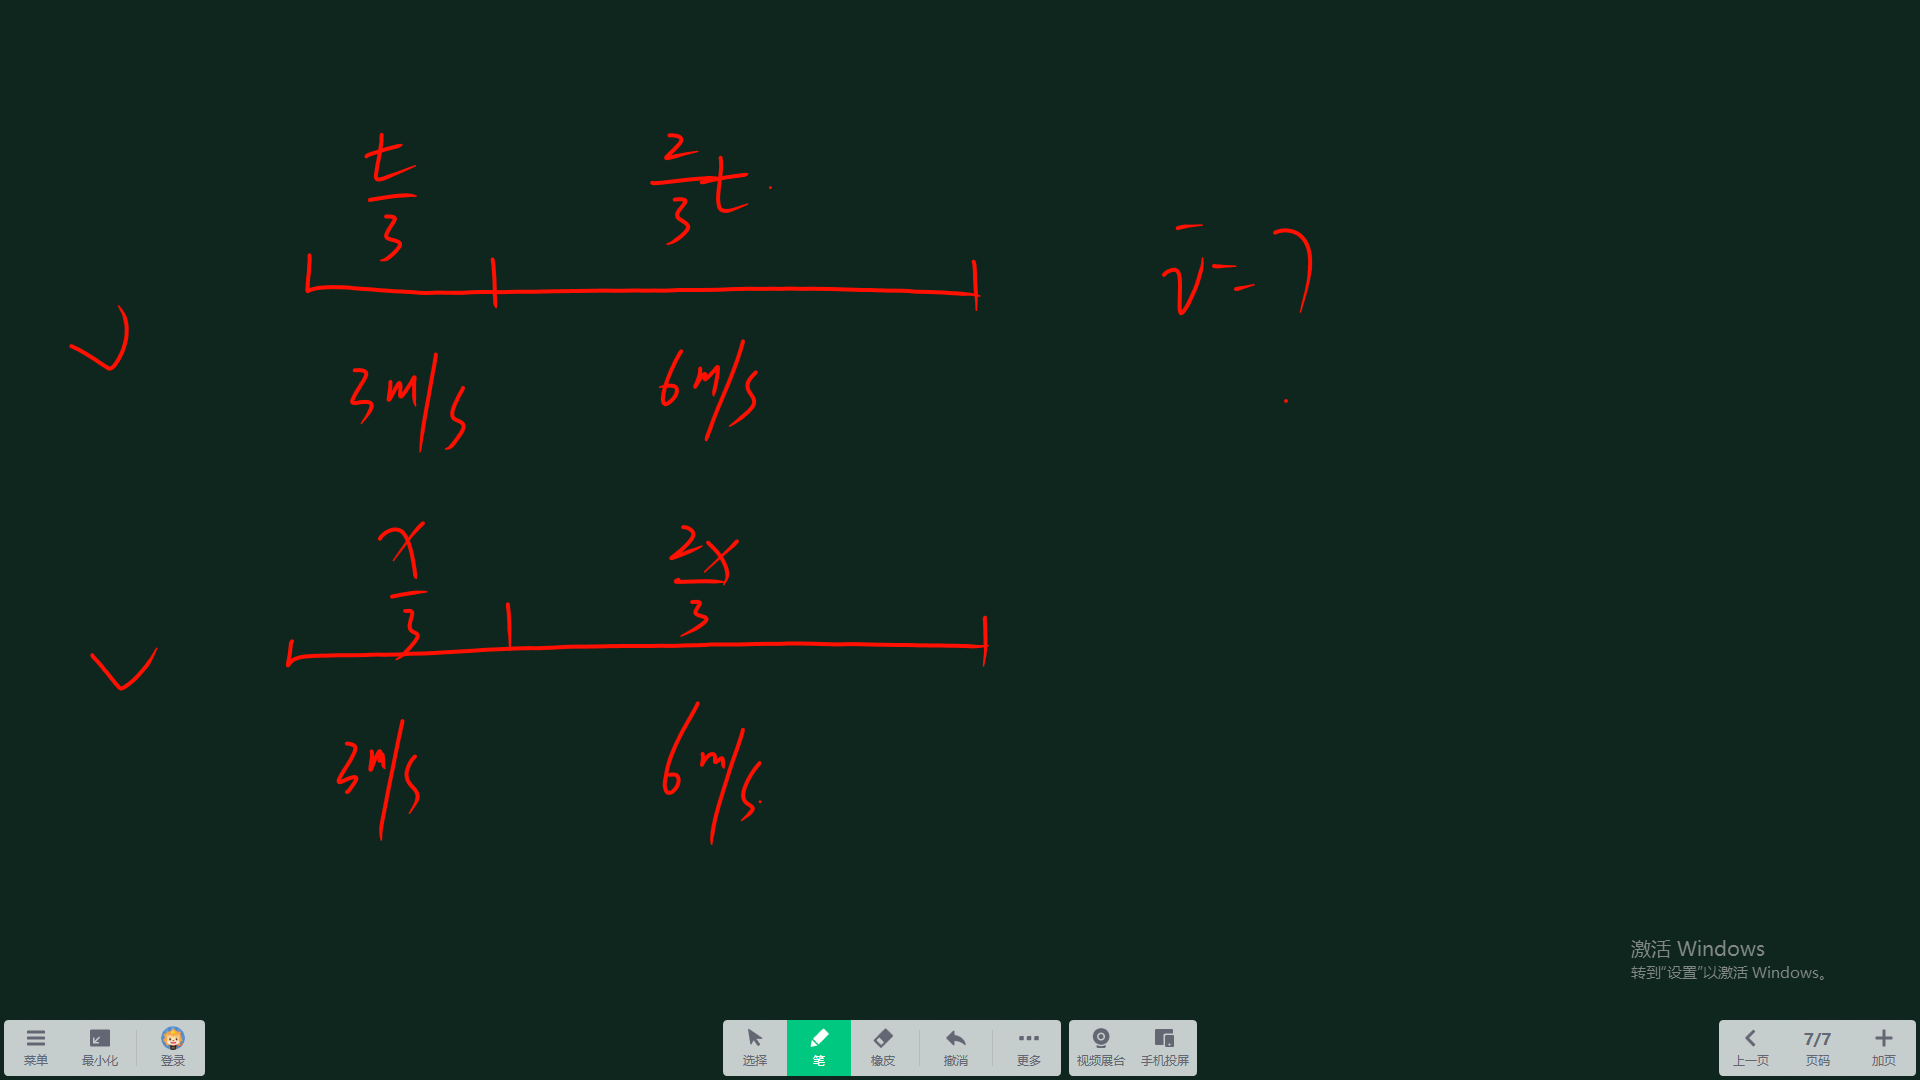 t/3 2/3 t
v̄ = ?
3m/s 6m/s
x/3 2x/3
3m/s 6m/s
激活 Windows
转到“设置”以激活 Windows。
菜单 最小化 登录 选择 笔 橡皮 撤消 更多 视频展台 手机投屏 上一页 7/7 页码 加页